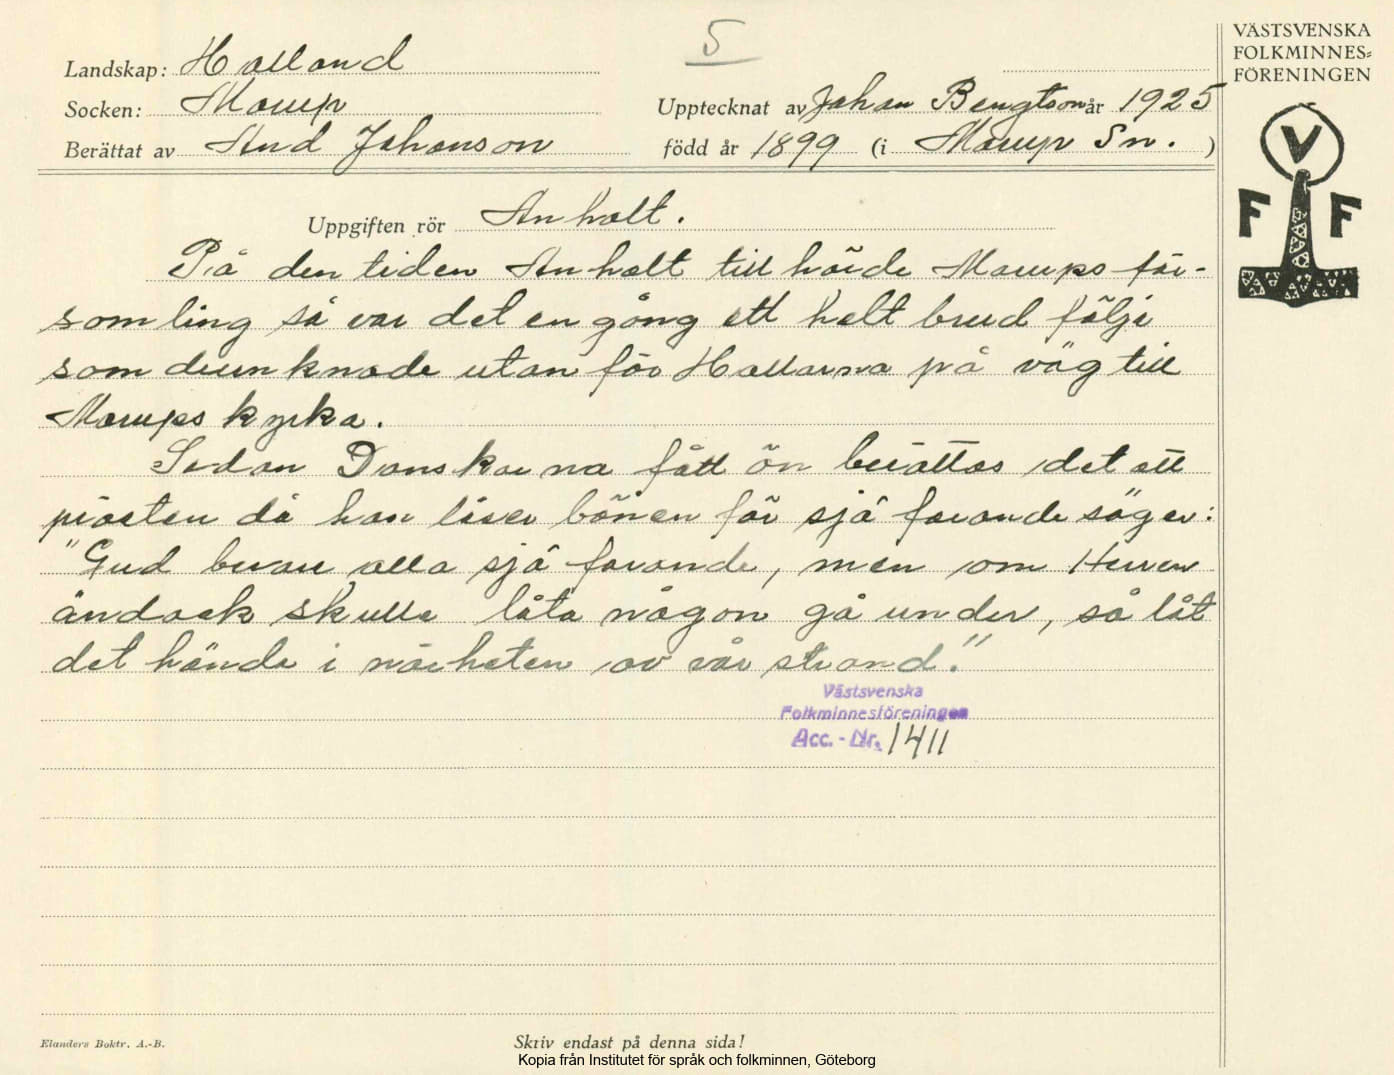 5
VÄSTSVENSKA
FOLKMINNES=
FÖRENINGEN
V
F F
Landskap: Halland
Socken: Morup
Upptecknat av Johan Bengtson år 1925
Berättat av And Johanson
född år 1899 (i Morup Sn. )
Uppgiften rör Anholt.
På den tiden Anholt till hörde Morups för-
somling så var det en gång ett helt brud följe
som drunknade utan för Hallarna på väg till
Morups kyrka.
Sedan Danskarna fått ön berättas det att
prästen då han läser bönen för sjö farande säger:
"Gud bevare alla sjö farande, men om Herren
ändock skulle låta någon gå under, så låt
det hände i närheten av vår strand."
Västsvenska
Folkminnesföreningen
Acc. - Nr. 1411
Elanders Boktr. A.-B.
Skriv endast på denna sida!
Kopia från Institutet för språk och folkminnen, Göteborg